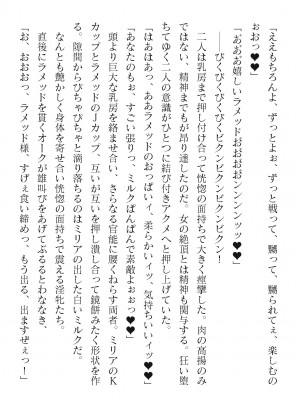 「ええもちろんよ、ずっとよぉ、ずっと戦って、嬲って、嬲られてぇ、楽しむの
おおっ♥♥」
「あああ嬉しいラメッドおおおおンンンンッッ♥♥♥」
――びくびくびくびくビクンビクンビクン！
二人は乳房まで押し付け合って恍惚の面持ちで大きく痙攣した。肉の高揚のみ
ではない、精神までもが昂り達したのだ。女の絶頂とは精神も関与する。狂い堕
ちてゆく二人の意識がひとつに結び付きアクメへと押し上げた。
「はあはあっ、あああラメッドのおっぱいィ、柔らかいィッ、気持ちいいィッ♥♥」
「あなたのもぉ、すごい張りっ、ミルクぱんぱんで素敵よぉおっ♥♥」
頭より巨大な乳房を絡ませ合い、さらなる官能に腰くねらす両者。ミリアのＫ
カップとラメッドのＪカップ、互いが互いを押し潰し合って鏡餅みたく形状を作
る。隙間からぴちゃぴちゃと滴り落ちるのはミリアの出した白いミルクだ。
なんとも艶かしく身体を寄せ合い、恍惚の面持ちで震える淫牝たち。
直後にラメッドを貫くオークが雄叫びをあげてぶるるとわななき、
「お、おおおっ、ラメッド様、すげぇ食い締めっ、もう出る、出ますぜぇっ！」